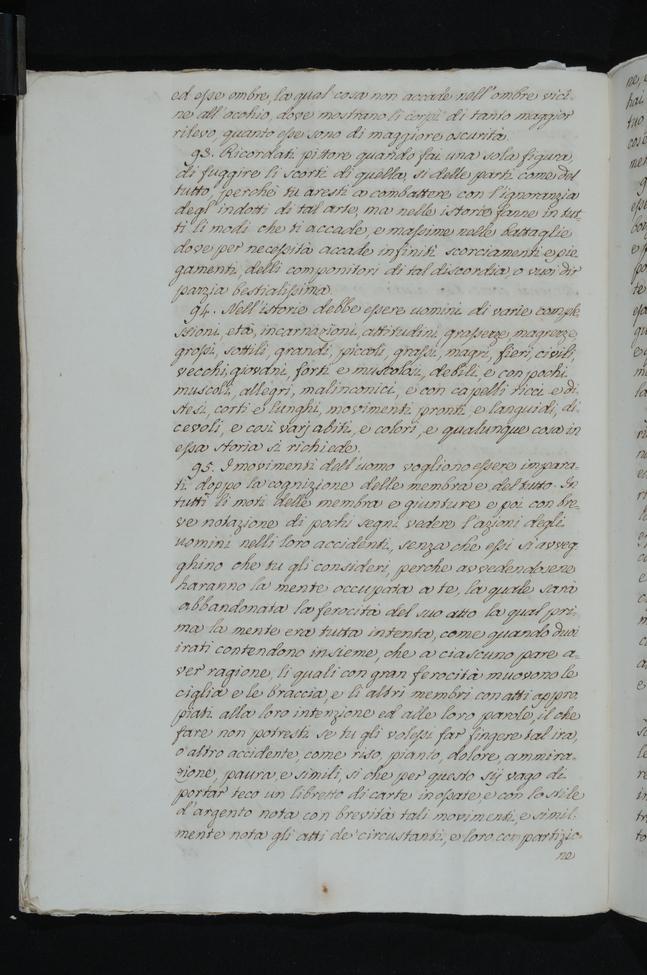 ed esse ombre, la qual cosa non accade nell'ombre vici-
ne all'occhio, dove mostrano li corpi di tanto maggior
rilevo quanto esse sono di maggiore oscurità.
93. Ricordati pittore quando fai una sola figura,
di fuggire li scorti di quella, si delle parti come del
tutto, perchè tu aresti a combattere con l'ignoranzia
degl'indotti di tal arte, ma nelle istorie fanne in tut-
ti li modi che ti accade, e massime nelle battaglie
dove per necessità accade infiniti scorciamenti e pie-
gamenti delli componitori di tal discordia, o vuoi dir
pazzia bestialissima.
94. Nell'istorie debbe essere uomini di varie comple-
ssioni, età, incarnazioni, attitudini, grassezze, magrezze,
grossi, sottili, grandi, piccoli, grassi, magri, fieri, civili,
vecchi, giovani, forti e muscolosi, debili, e con pochi
muscoli, allegri, malinconici, e con capelli ricci e di-
stesi, corti e lunghi, movimenti pronti, e languidi, di-
cevoli, e così varj abiti, e colori, e qualunque cosa in
essa storia si richiede.
95. I movimenti dell'uomo vogliono essere impara-
ti doppo la cognizione delle membra e del tutto. In
tutti li moti delle membra e giunture e poi con bre-
ve notazione di pochi segni vedere l'azioni degli
uomini nelli loro accidenti, senza che essi si avveg-
ghino che tu gli consideri, perche avvedendosene
haranno la mente occupata a te, la quale sarà
abbandonata la ferocità del suo atto la qual pri-
ma la mente era tutta intenta, come quando duoi
irati contendono insieme, che a ciascuno pare a-
ver ragione, li quali con gran ferocità muovono le
ciglia e le braccia, e li altri membri con atti appro-
piati alla loro intenzione ed alle loro parole, il che
fare non potresti se tu gli volessi far fingere tal ira,
o altro accidente, come riso, pianto, dolore, ammira-
zione, paura, e simili, si che per questo sij vago di
portar teco un libretto di carte inossate, e con lo stile
d'argento nota con brevità tali movimenti, e simil-
mente nota gli atti de' circustanti, e loro compartizio-
ne